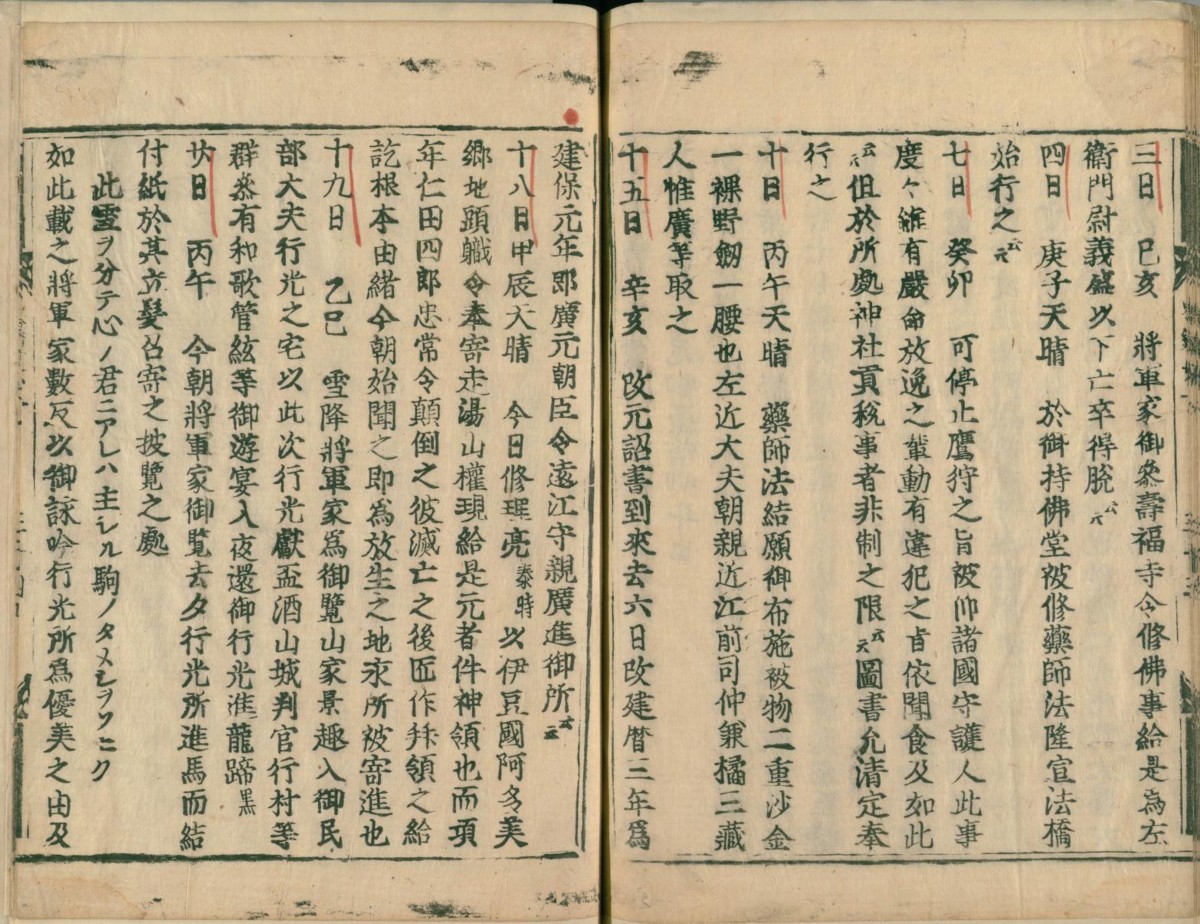 三日 已亥 將軍家御參壽福寺令修佛事給是為左
衛門尉義盛以下亡卒得脫云々
四日 庚子天晴 於御持佛堂被修藥師法隆宣法橋
始行之云々
七日 癸卯 可停止鷹狩之旨被仰諸國守護人此事
度々雖有嚴命放逸之輩動有違犯之旨依聞食及如此
云々但於所處神社貢稅事者非制之限云々圖書允清定奉
行之
十日 丙午天晴 藥師法結願御布施被物二重沙金
一裸野劒一腰也左近大夫朝親近江前司仲兼橘三藏
人惟廣等取之
十五日 辛亥 改元詔書到來去六日改建曆三年爲
建保元年即廣元朝臣令遠江守親廣進御所云云
十八日甲辰天晴 今日修理亮泰時以伊豆國阿多美
鄉地頭職令奉寄走湯山權現給是元者件神領也而項
年仁田四郎忠常令顛倒之彼滅亡之後匠作拜領之給
訖根本由緒今朝始聞之即為放生之地永所被寄進也
十九日 乙巳 雪降將軍家爲御覽山家景趣入御民
部大夫行光之宅以此次行光獻盃酒山城判官行村等
群參有和歌管絃等御遊宴入夜還御行光進龍蹄黑
廿日 丙午 今朝將軍家御覽去夕行光所進馬而結
付紙於其立髮召寄之披覽之處
此雪ヲ分テ心ノ君ニアレハ主シル駒ノタメシヲソヒク
如此載之將軍家數反以御詠吟行光所爲優美之由及